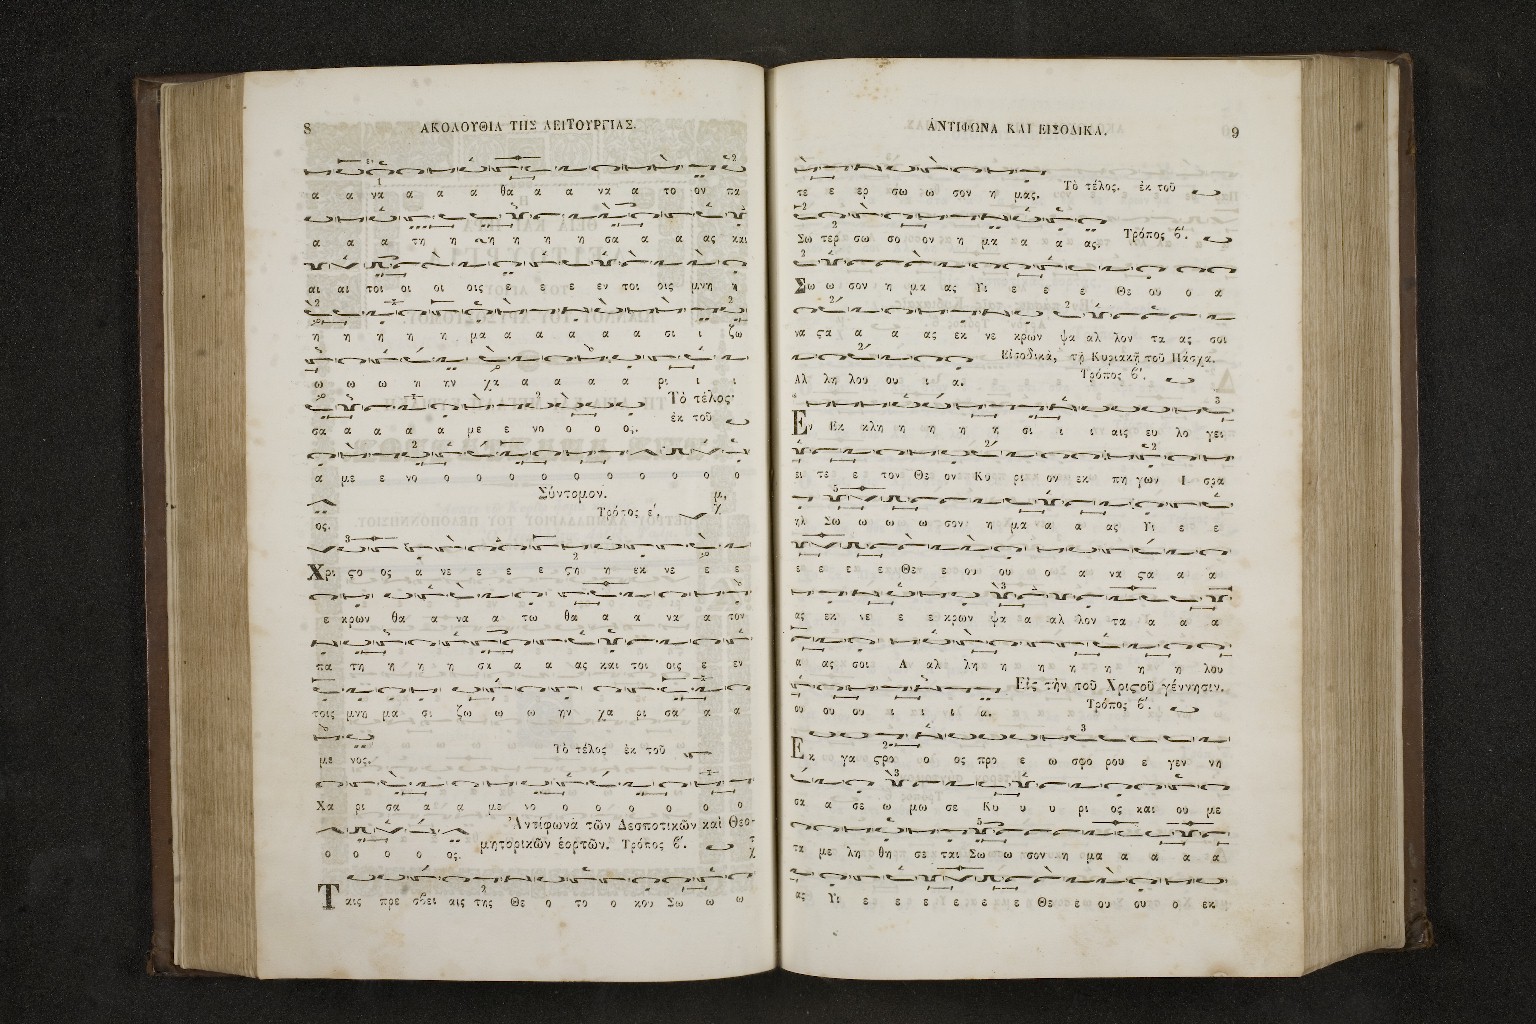 8
ΑΚΟΛΟΥΘΙΑ ΤΗΣ ΛΕΙΤΟΥΡΓΙΑΣ.
α α να α α α θα α α να α το ον πα
α α α τη η τη η η η σα α α ας και
αι αι τοι οι οι οις ε ε ε εν τοι οις μνη η
η η η η η μα α α α α α σι ι ζω
ω ω ω η ην χα α α α α ρι ι ι
σα α α α α με ε νο ο ο ος. Τὸ τέλος·
ἐκ τοῦ
α με ε νο ο ο ο ο ο ο ο ο ο
Σύντομον.
ος.
Τρόπος ε΄.
Χρι ϛο ος α νε ε ε ε ϛη η εκ νε ε ε
ε κρων θα α να α τω θα α α να α τον
πα τη η η η σα α α ας και τοι οις ε εν
τοις μνη μα σι ζω ω ω ην χα ρι σα α α
με νος.
Τὸ τέλος ἐκ τοῦ
Χα ρι σα α α με νο ο ο ο ο ο ο
Ἀντίφωνα τῶν Δεσποτικῶν καὶ Θεο-
μητορικῶν ἑορτῶν. Τρόπος β΄.
ο ο ο ο ος.
Ταις πρε σβει αις της Θε ο το ο κου Σω ω ω
ΑΝΤΙΦΩΝΑ ΚΑΙ ΕΙΣΟΔΙΚΑ.
9
τε ε ερ σω ω σον η μας. Τὸ τέλος. ἐκ τοῦ
Σω τερ σω σο ον η μα α α ας. Τρόπος β΄.
Σω ω σον η μα ας Υι ε ε ε Θε ου ο α
να ϛα α α ας εκ νε κρων ψα αλ λον τα ας σοι
Εἰσοδικά, τῇ Κυριακῇ τοῦ Πάσχα.
Αλ λη λου ου ι α. Τρόπος β΄.
Εν Εκ κλη η η η η σι ι ι αις ευ λο γει
ει τε ε τον Θε ον Κυ ρι ον εκ πη γων Ι σρα
ηλ Σω ω ω ω σον η μα α α ας Υι ε ε
ε ε ε ε Θε ε ου ου ο α να ϛα α α
ας εκ νε ε ε κρων ψα α αλ λον τα α α α
α ας σοι Α αλ λη η η η η η η λου
Εἰς τὴν τοῦ Χριϛοῦ γέννησιν.
ου ου ου ι ι ι α. Τρόπος β΄.
Εκ γα ϛρο ο ος προ ε ω σφο ρου ε γεν νη
σα α σε ω μω σε Κυ υ υ ρι ος και ου με
τα με λη θη σε ται Σω ω σον η μα α α α α
ας Υι ε ε ε ε ε ε Θε ε ου ου ο εκ